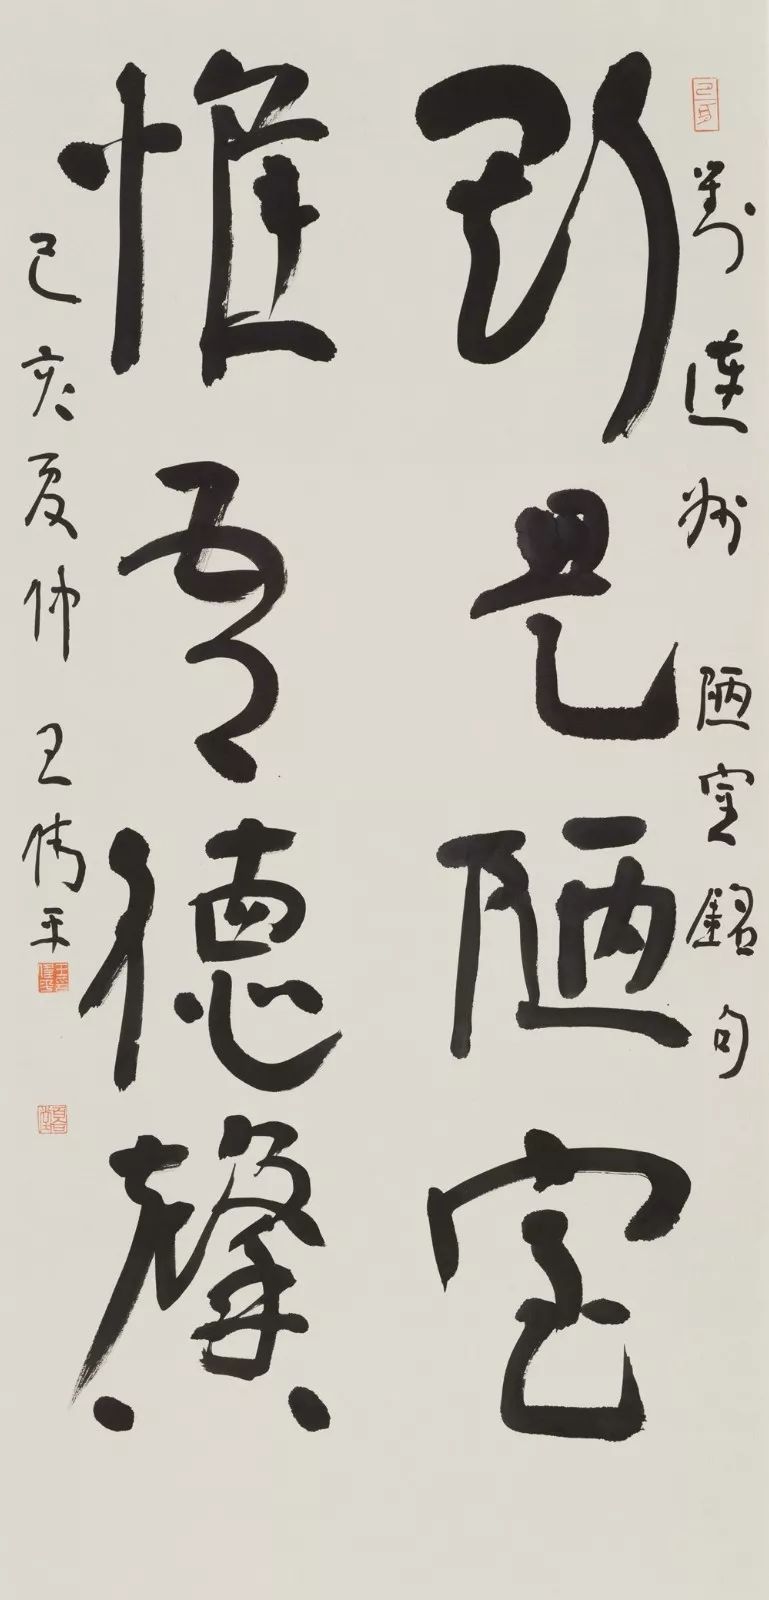 劉連州 陋室銘句
斯是陋室
惟吾德馨
己亥夏仲 王偉平